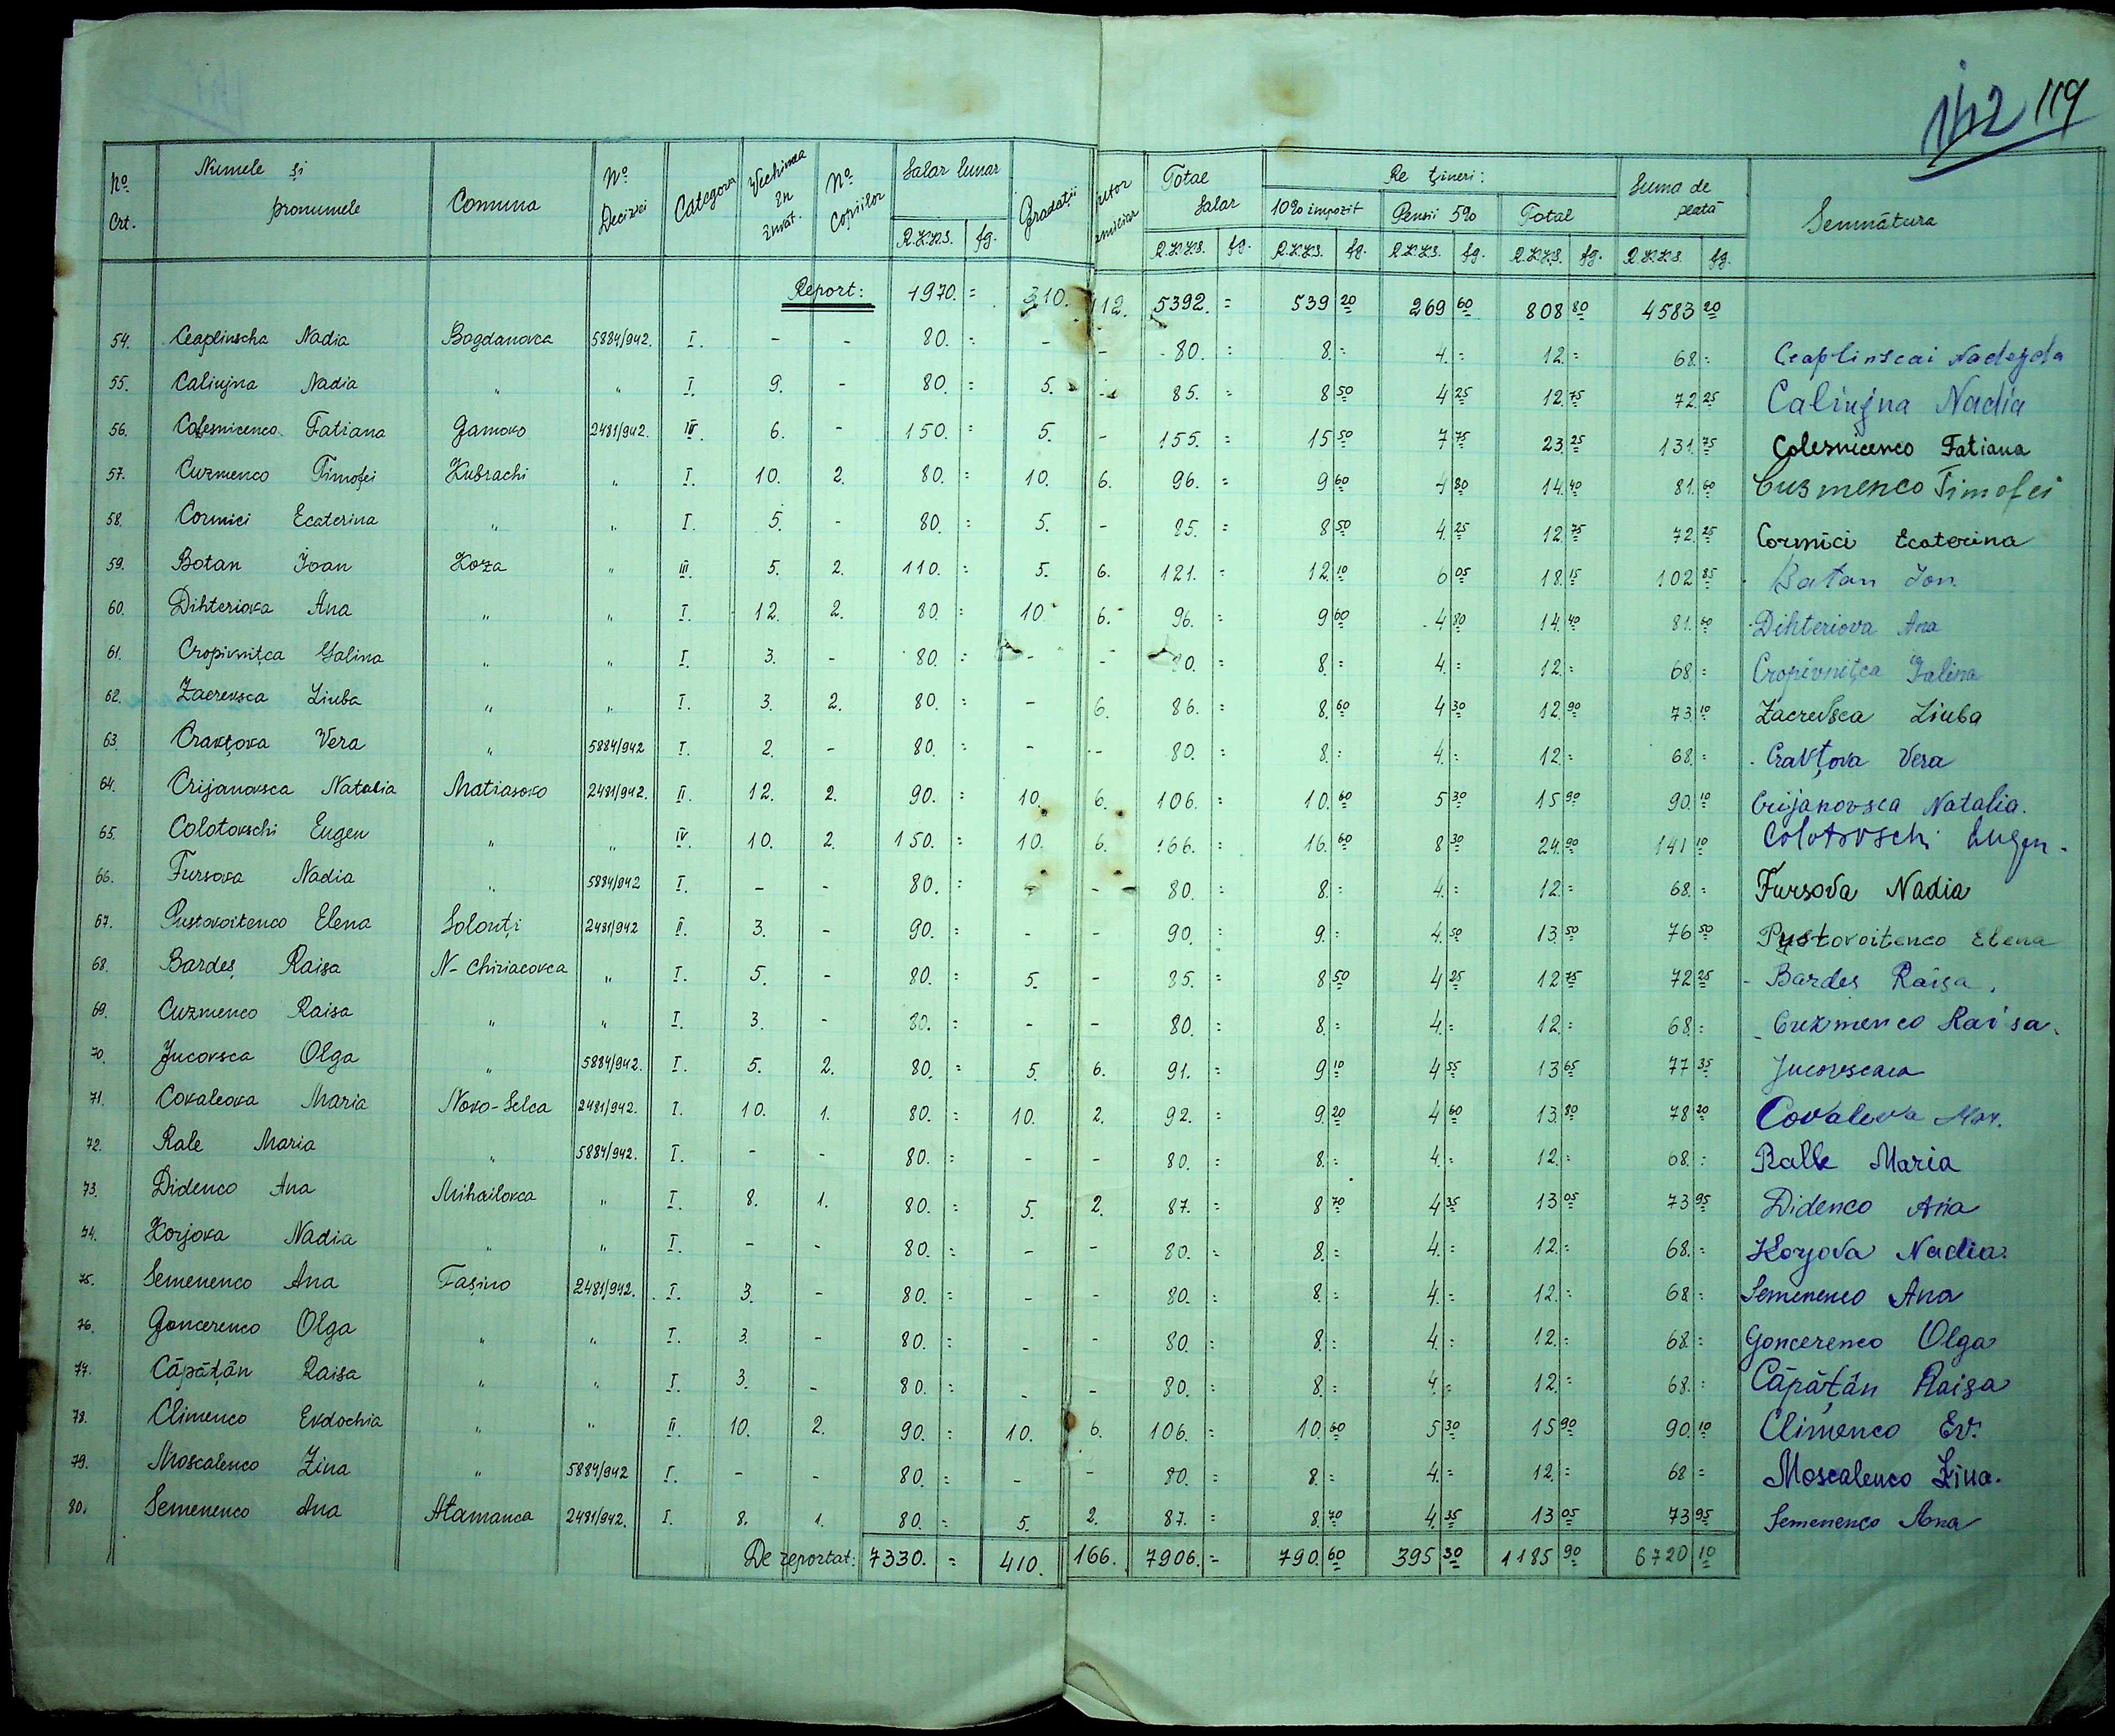 142 119
No. Crt. Numele și pronumele Comuna No. Deciziei Categoria Vechimea în învăt. No. Copiilor Salar lunar R.K.K.S. fg. Gradații Total Salar R.K.K.S. fg. Re țineri: 10% impozit R.K.K.S. fg. Pensii 5% R.K.K.S. fg. Total R.K.K.S. fg. Suma de plată R.K.K.S. fg. Semnătura
Report: 1970. = 310. 112. 5392. = 539 20 269 60 808 80 4583 20
54. Ceaplinscha Nadia Bogdanovca 5884/942. I. - - 80. = - - 80. = 8. = 4. = 12. = 68. = Ceaplinscai Nadejda
55. Caliujna Nadia " " I. 9. - 80. = 5. - 85. = 8 50 4 25 12. 75 72. 25 Caliujna Nadia
56. Colesnicenco Tatiana Gamovo 2481/942. IV. 6. - 150. = 5. - 155. = 15 50 7 75 23. 25 131. 75 Colesnicenco Tatiana
57. Cuzmenco Timofei Kubrachi " I. 10. 2. 80. = 10. 6. 96. = 9 60 4 80 14. 40 81. 60 Cuzmenco Timofei
58. Cormici Ecaterina " " I. 5. - 80. = 5. - 85. = 8 50 4. 25 12. 75 72. 25 Cormici Ecaterina
59. Botan Ioan Koza " III. 5. 2. 110. = 5. 6. 121. = 12. 10 6 05 18. 15 102 85 Batan Ion.
60. Dihteriova Ana " " I. 12. 2. 80 = 10 6. 96. = 9 60 4 80 14. 40 81. 60 Dihteriova Ana
61. Cropivnițca Galina " " I. 3. - 80. = - - 80. = 8. = 4. = 12. = 68. = Cropivnițca Galina
62. Zacrevsca Liuba " " I. 3. 2. 80. = - 6. 86. = 8. 60 4 30 12. 90 73. 10 Zacrevsca Liuba
63. Cravțova Vera " 5884/942 I. 2. - 80. = - - 80. = 8. = 4. = 12. = 68. = Cravțova Vera
64. Crijanovsca Natalia Matiasovo 2481/942. II. 12. 2. 90. = 10. 6. 106. = 10. 60 5 30 15 90 90. 10 Crijanovsca Natalia.
65. Colotovschi Eugen " " IV. 10. 2. 150. = 10. 6. 166. = 16. 60 8 30 24. 90 141 10 Colotovschi Eugen.
66. Fursova Nadia " 5884/942 I. - - 80. = - - 80. = 8. = 4. = 12. = 68. = Fursova Nadia
67. Pustovoitenco Elena Solonți 2481/942 II. 3. - 90. = - - 90. = 9. = 4. 50 13. 50 76 50 Pustovoitenco Elena
68. Bardeș Raisa N-Chiriacovca " I. 5. - 80. = 5. - 85. = 8 50 4 25 12 75 72 25 Bardeș Raisa.
69. Cuzmenco Raisa " " I. 3. - 80. = - - 80. = 8. = 4. = 12. = 68. = Cuzmenco Raisa.
70. Jucovsca Olga " 5884/942. I. 5. 2. 80. = 5. 6. 91. = 9 10 4 55 13 65 77 35 Jucovscaia
71. Covaleova Maria Novo-Selca 2481/942. I. 10. 1. 80. = 10. 2. 92. = 9. 20 4 60 13. 80 78 20 Covaleva Mar.
72. Rale Maria " 5884/942. I. - - 80. = - - 80. = 8. = 4. = 12. = 68. = Ralle Maria
73. Didenco Ana Mihailovca " I. 8. 1. 80. = 5. 2. 87. = 8 70 4 35 13 05 73 95 Didenco Ana
74. Korjova Nadia " " I. - - 80. = - - 80. = 8. = 4. = 12. = 68. = Korjova Nadia.
75. Semenenco Ana Tașino 2481/942. I. 3. - 80. = - - 80. = 8. = 4. = 12. = 68 = Semenenco Ana
76. Goncerenco Olga " " I. 3. - 80. = - - 80. = 8. = 4. = 12. = 68. = Goncerenco Olga
77. Căpățân Raisa " " I. 3. - 80. = - - 80. = 8. = 4. = 12. = 68. = Căpățân Raisa
78. Climenco Evdochia " " II. 10. 2. 90. = 10. 6. 106. = 10. 60 5 30 15 90 90. 10 Climenco Ev.
79. Moscalenco Zina " 5884/942 I. - - 80. = - - 80. = 8. = 4. = 12. = 68 = Moscalenco Zina.
80. Semenenco Ana Atamanca 2481/942. I. 8. 1. 80. = 5. 2. 87. = 8. 70 4. 35 13 05 73 95 Semenenco Ana
De reportat: 7330. = 410. 166. 7906. = 790. 60 395 30 1185 90 6720 10